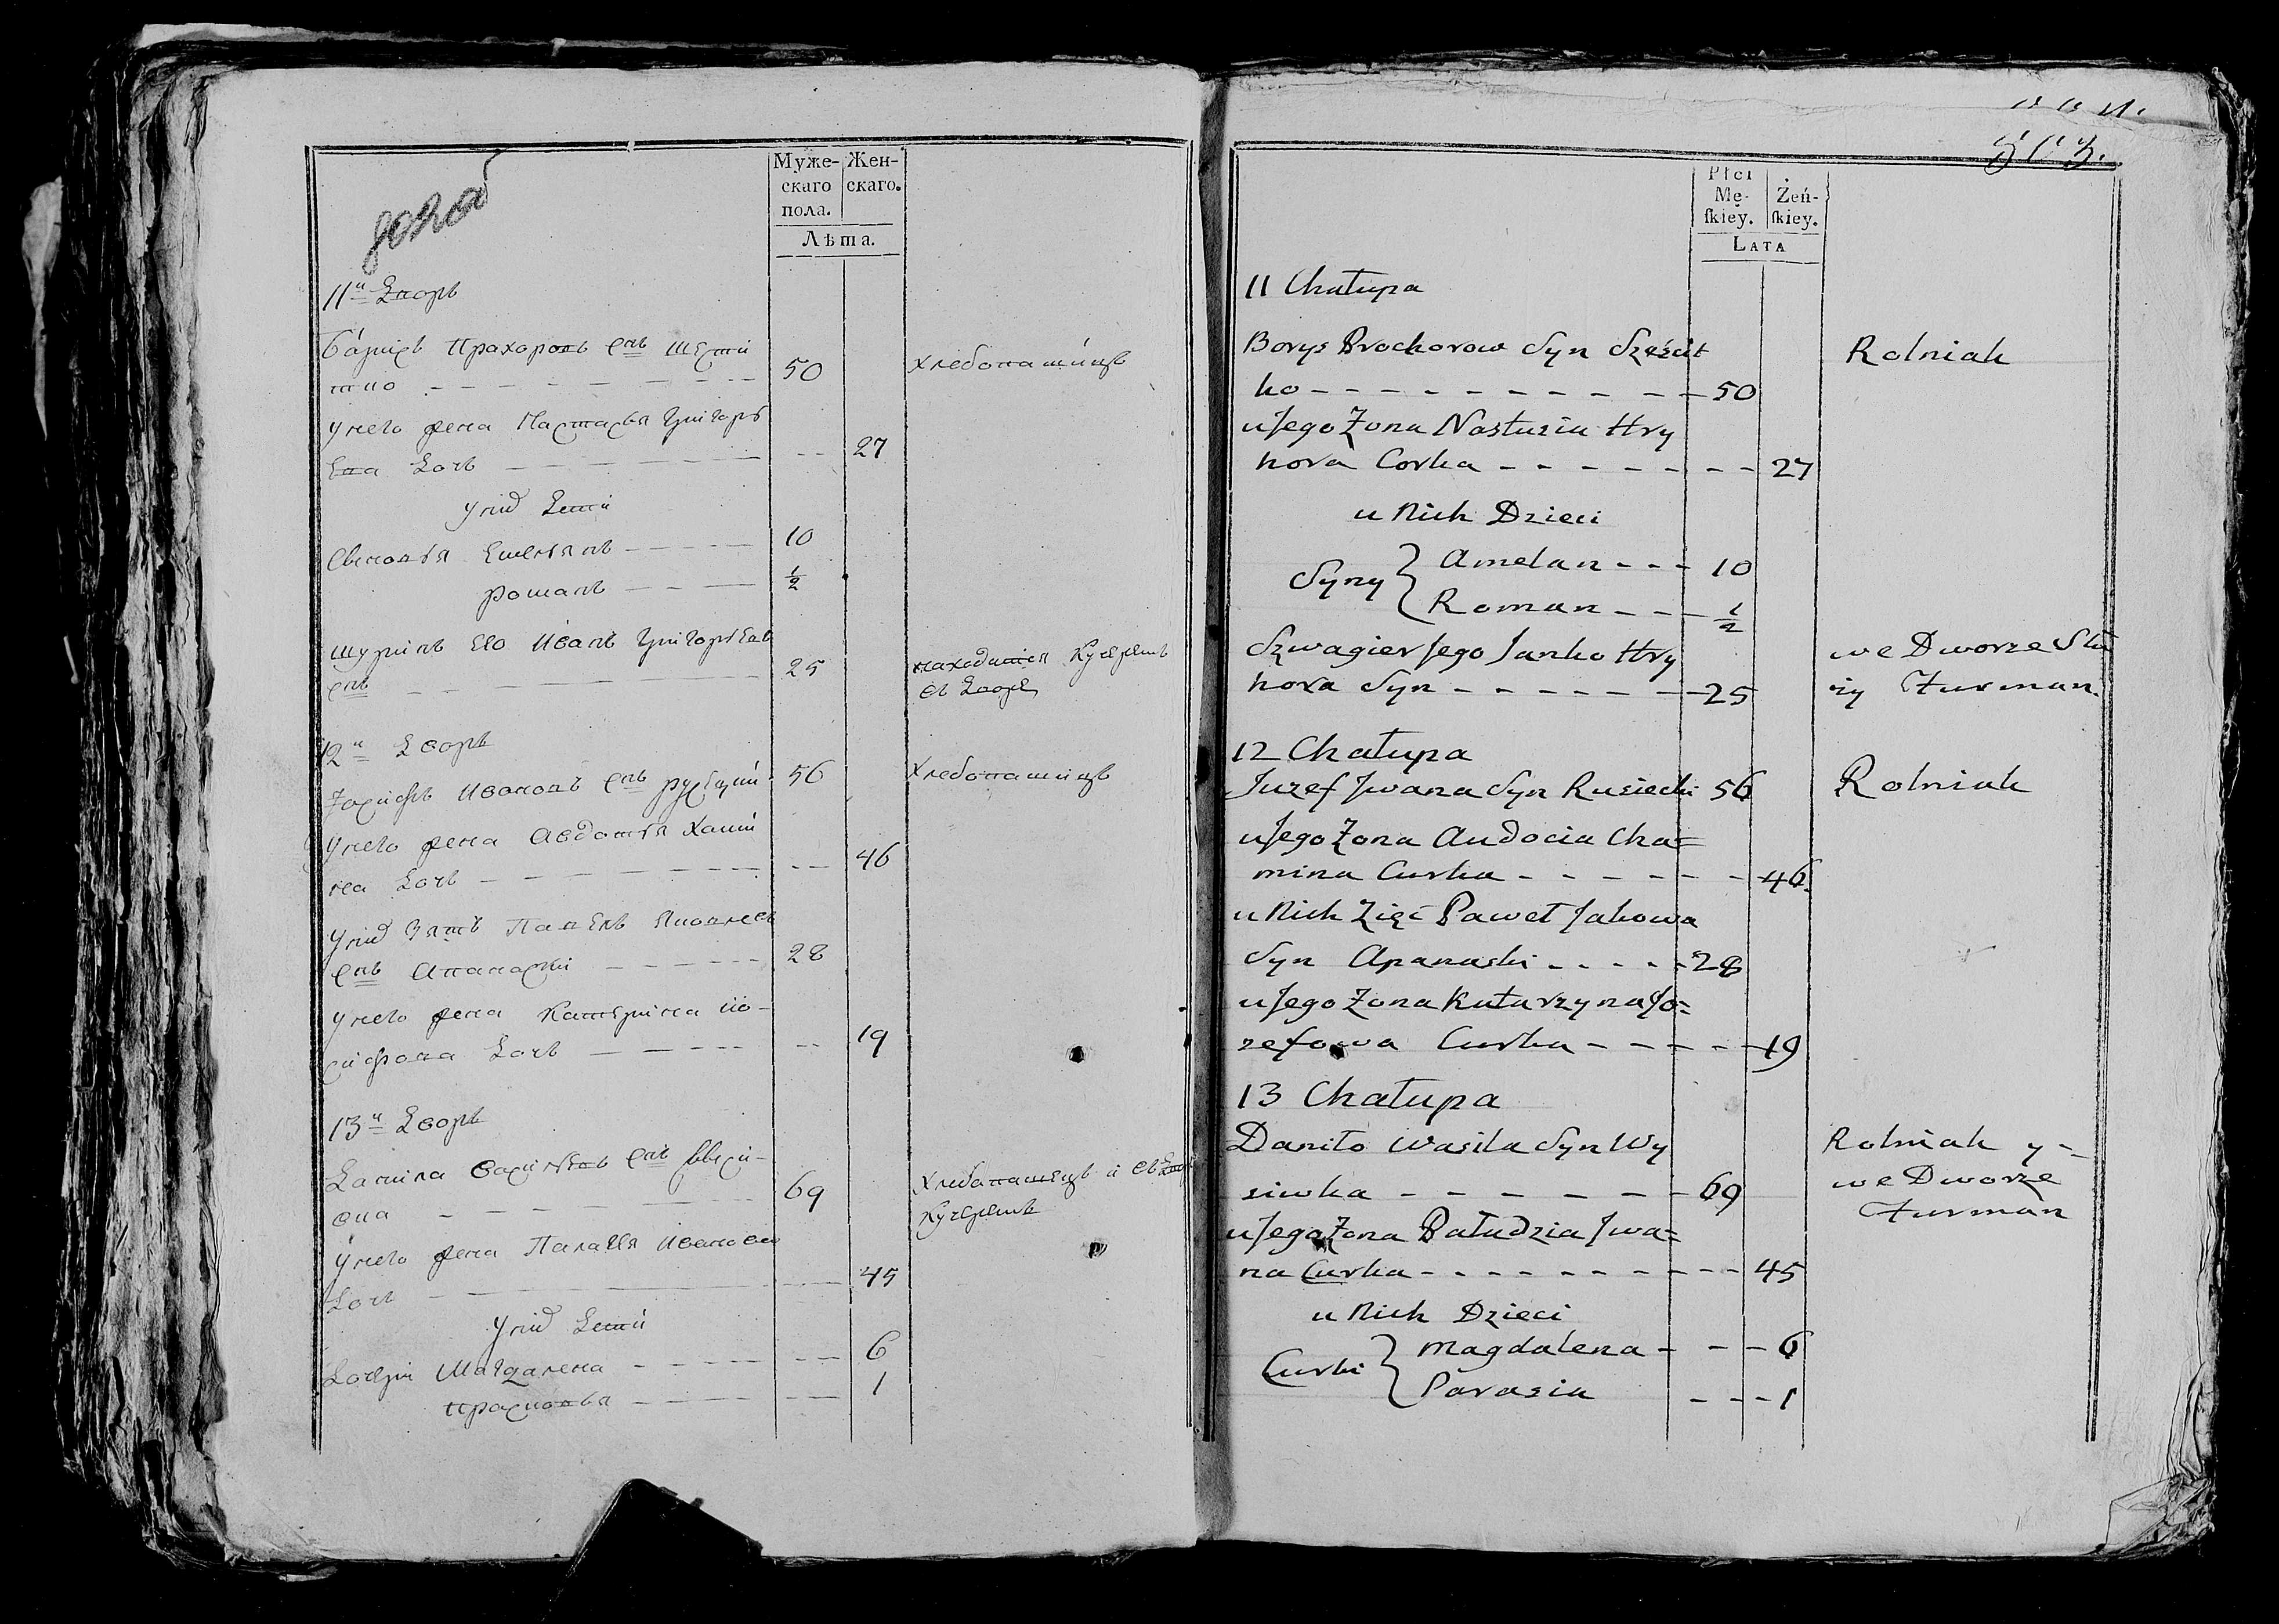 Муже-
скаго
пола.
Жен-
скаго.
Лѣта.
11й Дворъ
Барисъ Прахоровъ снъ Шести
тко 50 хлебопашицъ
у нево жена Настасья Григорь
ева дочь 27
у нихъ дети
Сыновья Емельянъ 10
Романъ ½
Шуринъ ево Иванъ Григорьевъ
снъ 25 находится кучеремъ
въ дворе
12й Дворъ
Иосифъ Ивановъ снъ Русецкий 56 Хлебопашицъ
у нево жена Авдотья Хами
на дочь 46
у нихъ зять Павелъ Яковлевъ
снъ Апанаски 28
у нево жена Катерина Ио-
сифова дочь 19
13й Дворъ
Данила Васильевъ снъ
69 Хлебопашецъ и въ дворе
кучеремъ
у нево жена Палагея Иванова
дочь 45
у нихъ дети
дочери Магдалена 6
Прасковья 1
Płci
Mę-
ſkiey.
Żeń-
ſkiey.
Lata
11 Chałupa
Borys Prochorow Syn
ko 50 Rolnik
u Jego Żona Nastuzia Hry
hora Corka 27
u Nich Dzieci
Syny { Amelan 10
Roman ½
Szwagier Jego Janko Hry we Dworze Słu
hora Syn 25 ży Furman.
12 Chałupa
Juzef Jwana Syn Rusiecki 56 Rolnik
u Jego Żona Audocia Cha=
mina Curka 46
u Nich Zięć Paweł Jakowa
Syn Apanaski 28
u Jego Żona Katarzyna Jo=
zefowa Curka 19
13 Chałupa
Daniło Wasila Syn Wy Rolnik y=
siwka 69 we Dworze
Furman
u Jego Żona Pałudzia Jwa=
na Curka 45
u Nich Dzieci
Curki { Magdalena 6
Parasia 1